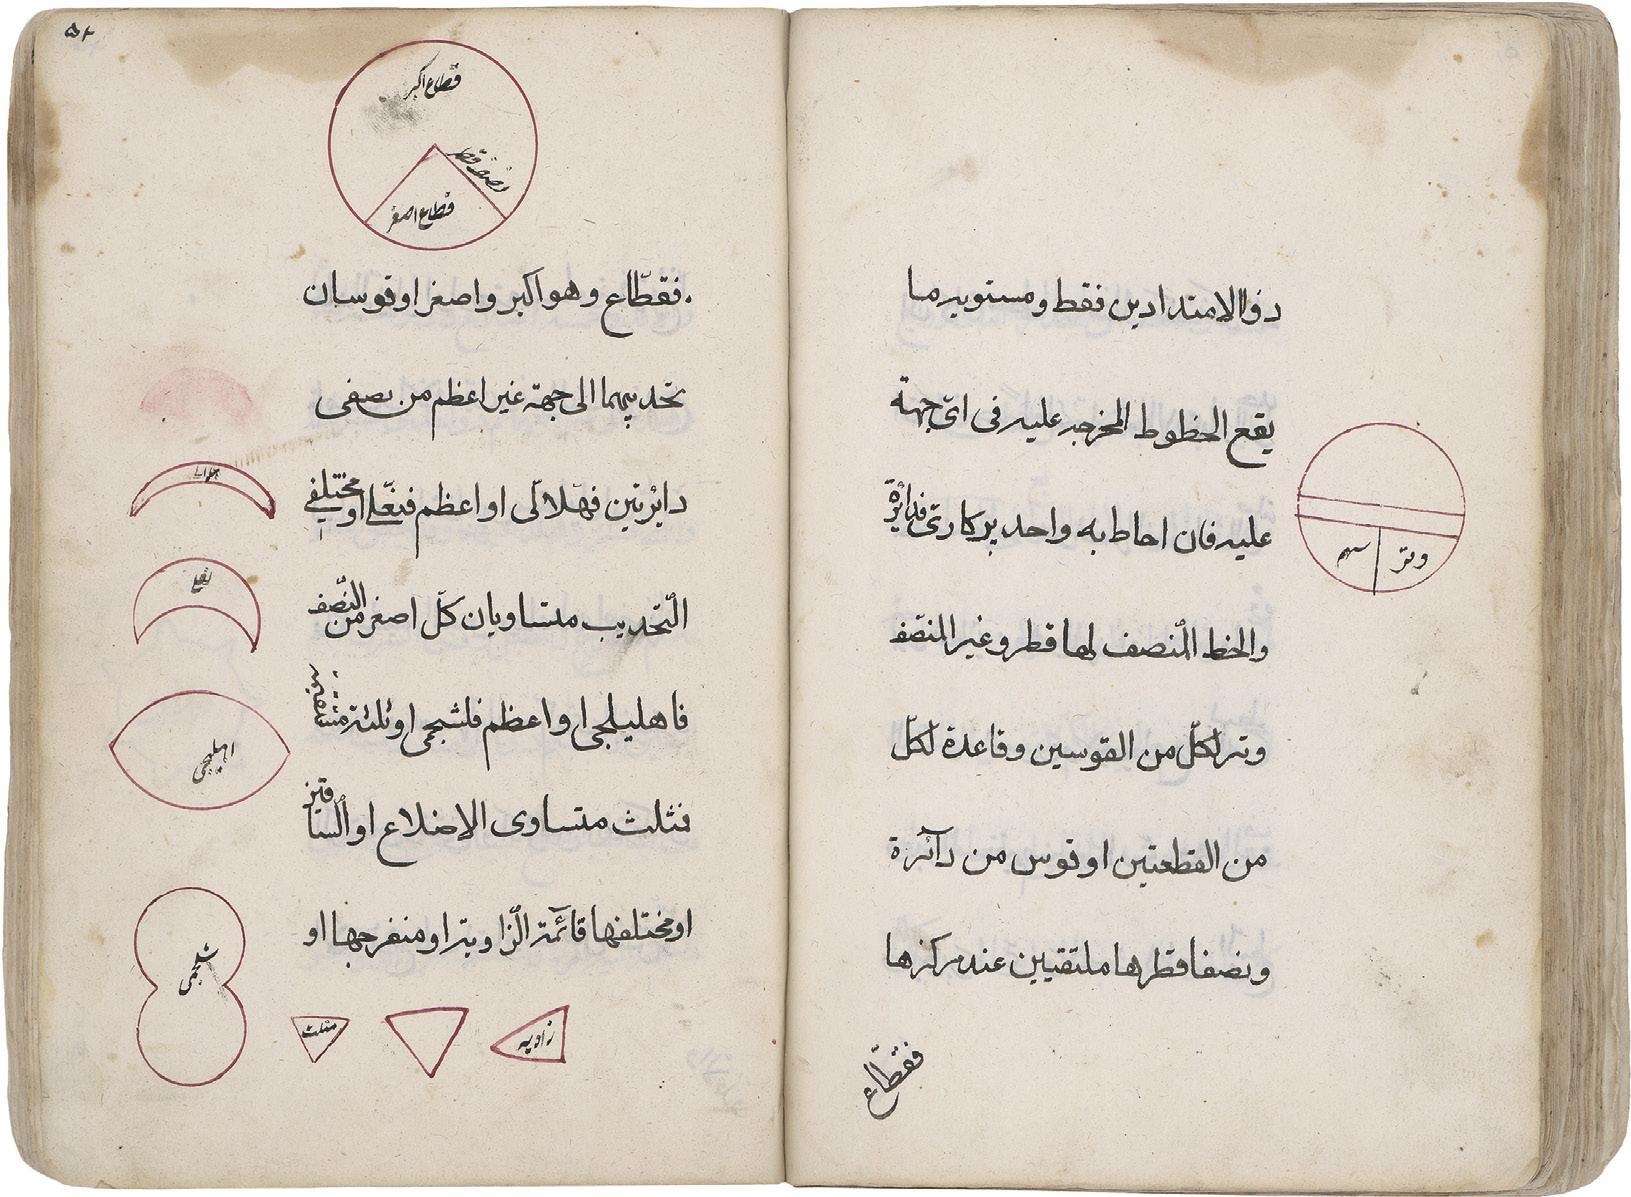 ذو الامتدادين فقط ومستويه ما
يقع الخطوط المخرجه عليه فى اىّ جهة
عليه فان احاط به واحد بركارى فدائرة
والخط المنصف لها قطر وغير المنصّف
وتر لكلّ من القوسين وقاعدة لكل
من القطعتين او قوس من دآئرة
ونصفا قطرها ملتقيين عند مركزها
فقطّاع
وتر
سهم
٥٢
قطاع اكبر
نصف قطر
قطاع اصغر
فقطّاع وهو اكبر واصغر او قوسان
تحديبهما الى جهة غير اعظم من نصفى
دائرتين فهلالى او اعظم فنعلى او مختلفى
التحديب متساويان كلّ اصغر من النّصف
فاهليلجى او اعظم فشلجمى او ثلثة مستقيمة
فمثلث متساوى الاضلاع او السّاقين
او مختلفها قائمة الزاوية او منفرجها او
هلالى
نعلى
اهليلجى
شلجمى
مثلث
زاويه